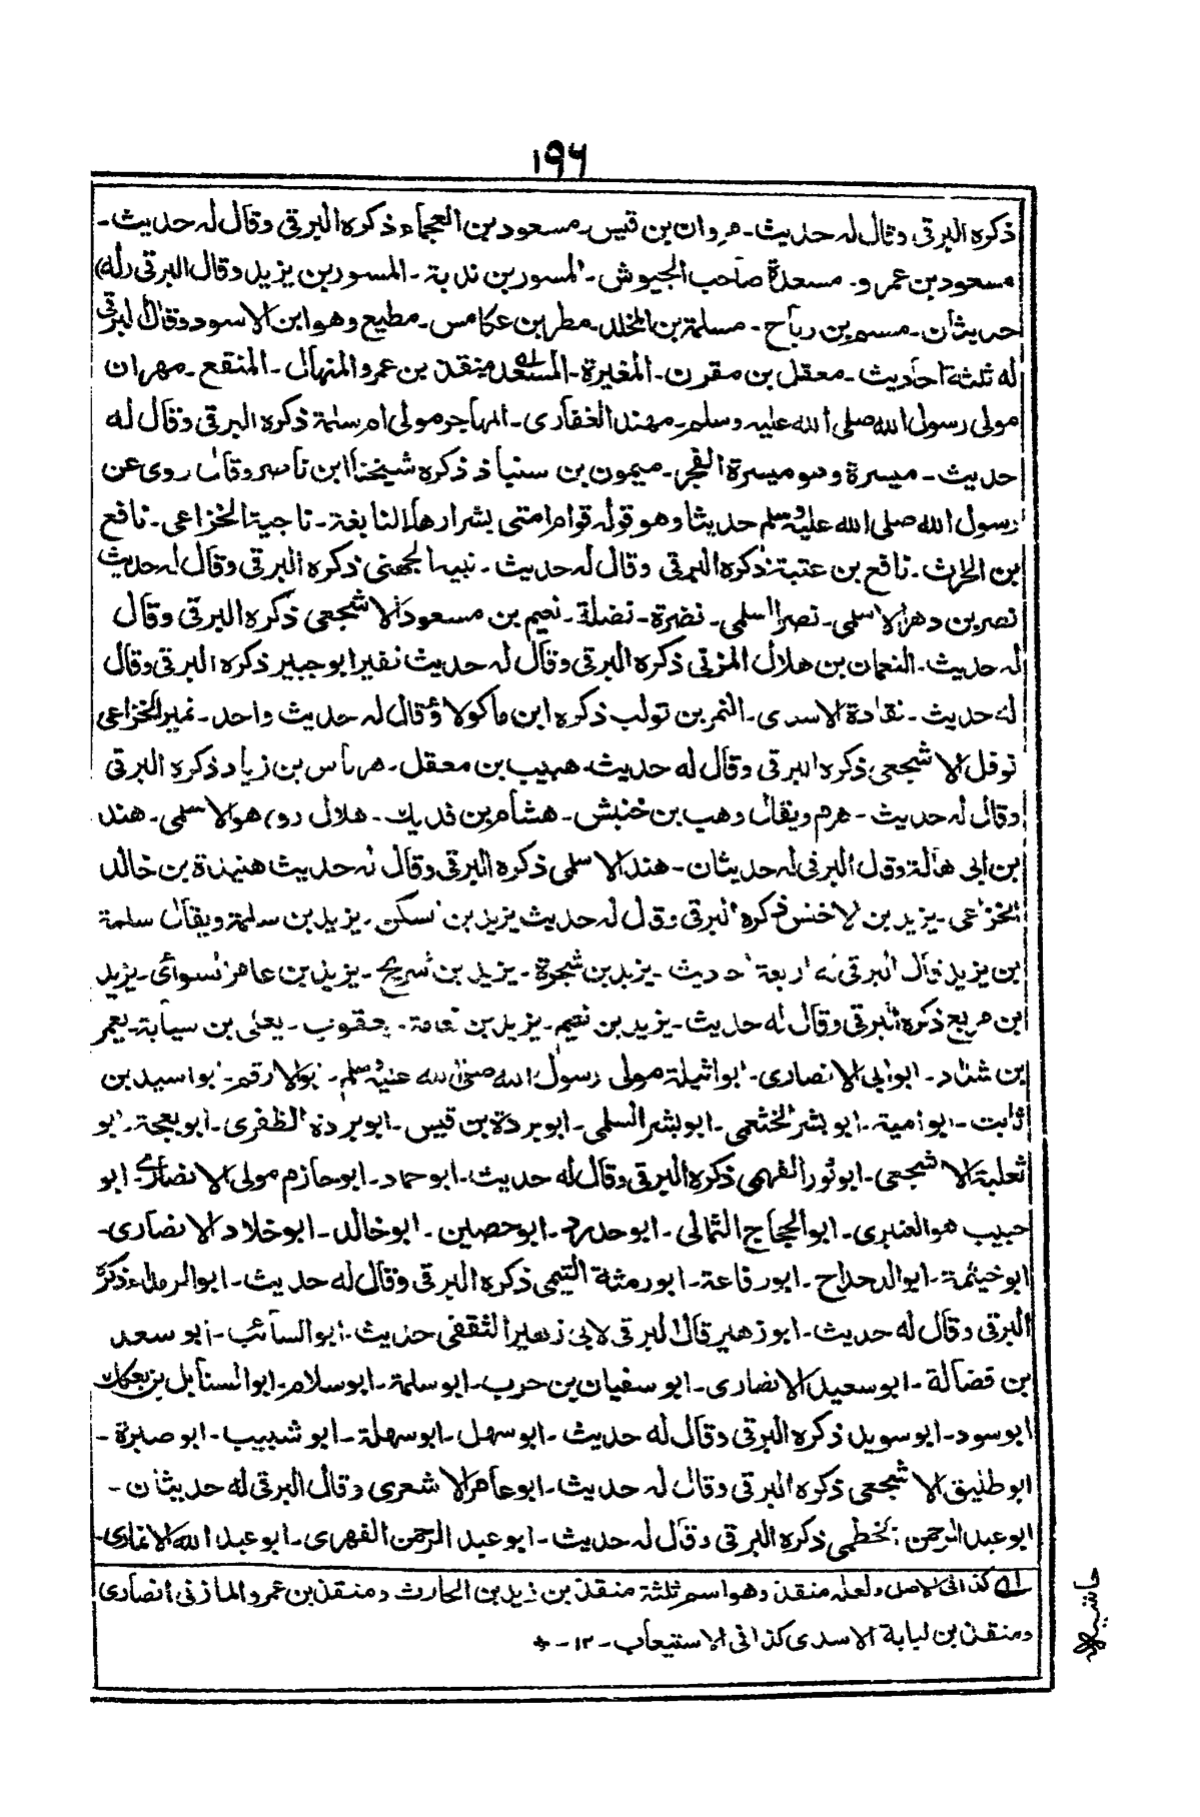 ١٩٦
ذكره البرقى وقال له حديث - مروان بن قيس - مسعود بن العجماء ذكره البرقى وقال له حديث -
مسعود بن عمرو - مسعدة صاحب الجيوش - المسور بن ندبة - المسور بن يزيد وقال البرقى (له)
حديثان - مسم بن رباح - مسلمة بن المخلد - مطر بن عكامس - مطيع وهو ابن الاسود وقال البرقى
له ثلثة احاديث - معقل بن مقرن - المغيرة - منقذ بن عمرو المنهال - المنقع - مهران
مولى رسول الله صلى الله عليه وسلم - مهند الغفارى - المهاجر مولى ام سلمة ذكره البرقى وقال له
حديث - ميسرة وهو ميسرة الفجر - ميمون بن سنباذ ذكره شيخنا ابن ناصر وقال روى عن
رسول الله صلى الله عليه وسلم حديثا وهو قوله قوام امتى بشرارها - النابغة - ناجية الخزاعى - نافع
بن الحرث - نافع بن عتبة ذكره البرقى وقال له حديث - نبيه الجهنى ذكره البرقى وقال له حديث
نصر بن دهر الاسلمى - نصر السلمى - نضرة - نضلة - نعيم بن مسعود الاشجعى ذكره البرقى وقال
له حديث - النعمان بن هلال المزنى ذكره البرقى وقال له حديث نفير ابو جبير ذكره البرقى وقال
له حديث - نقادة الاسدى - النمر بن تولب ذكره ابن ماكولا وقال له حديث واحد - نمير الخزاعى
نوفل الاشجعى ذكره البرقى وقال له حديث - هبيب بن معقل - هرماس بن زياد ذكره البرقى
وقال له حديث - هرم ويقال وهب بن خنبش - هشام بن فديك - هلال (و) هو الاسلمى - هند
بن ابى هالة وقال البرقى له حديثان - هند الاسلمى ذكره البرقى وقال له حديث هنيدة بن خالد
الخزاعى - يزيد بن الاخنس ذكره البرقى وقال له حديث يزيد بن السكن - يزيد بن سلمة ويقال سلمة
بن يزيد قال البرقى له اربعة احاديث - يزيد بن شجرة - يزيد بن شريح - يزيد بن عامر السوائى - يزيد
ابن مربع ذكره البرقى وقال له حديث - يزيد بن نعيم - يزيد بن نعامة - يعقوب - يعلى بن سيابة - يعمر
بن شداد - ابو ابى الانصارى - ابو اثيلة مولى رسول الله صلى الله عليه وسلم - ابو الارقم - ابو اسيد بن
ثابت - ابو امية - ابو بشر الخثعمى - ابو بشر السلمى - ابو بردة بن قيس - ابو بردة الظفرى - ابو بعجة - ابو
ثعلبة الاشجعى - ابو ثور الفهمى ذكره البرقى وقال له حديث - ابو حماد - ابو حازم مولى الانصارى - ابو
حبيب هو العنبرى - ابو الحجاج الثمالى - ابو حدرد - ابو حصين - ابو خالد - ابو خلاد الانصارى -
ابو خيثمة - ابو الدحداح - ابو رفاعة - ابو رمثة التيمى ذكره البرقى وقال له حديث - ابو الرمداء ذكره
البرقى وقال له حديث - ابو زهير قال البرقى لابى زهير الثقفى حديث - ابو السائب - ابو سعد
بن فضالة - ابو سعيد الانصارى - ابو سفيان بن حرب - ابو سلمة - ابو سلام - ابو السنابل بن بعكك
ابو سود - ابو سويد ذكره البرقى وقال له حديث - ابو سهل - ابو سهلة - ابو شبيب - ابو صبرة -
ابو طليق الاشجعى ذكره البرقى وقال له حديث - ابو عامر الاشعرى وقال البرقى له حديثان -
ابو عبد الرحمن الخطمى ذكره البرقى وقال له حديث - ابو عبد الرحمن الفهرى - ابو عبد الله الانمارى -
له كذا فى الاصل ولعله منقذ وهو اسم ثلثة منقذ بن زيد بن الحارث ومنقذ بن عمرو المازنى انصارى
ومنقذ بن لبابة الاسدى كذا فى الاستيعاب - ١٢ - *
حاشيه